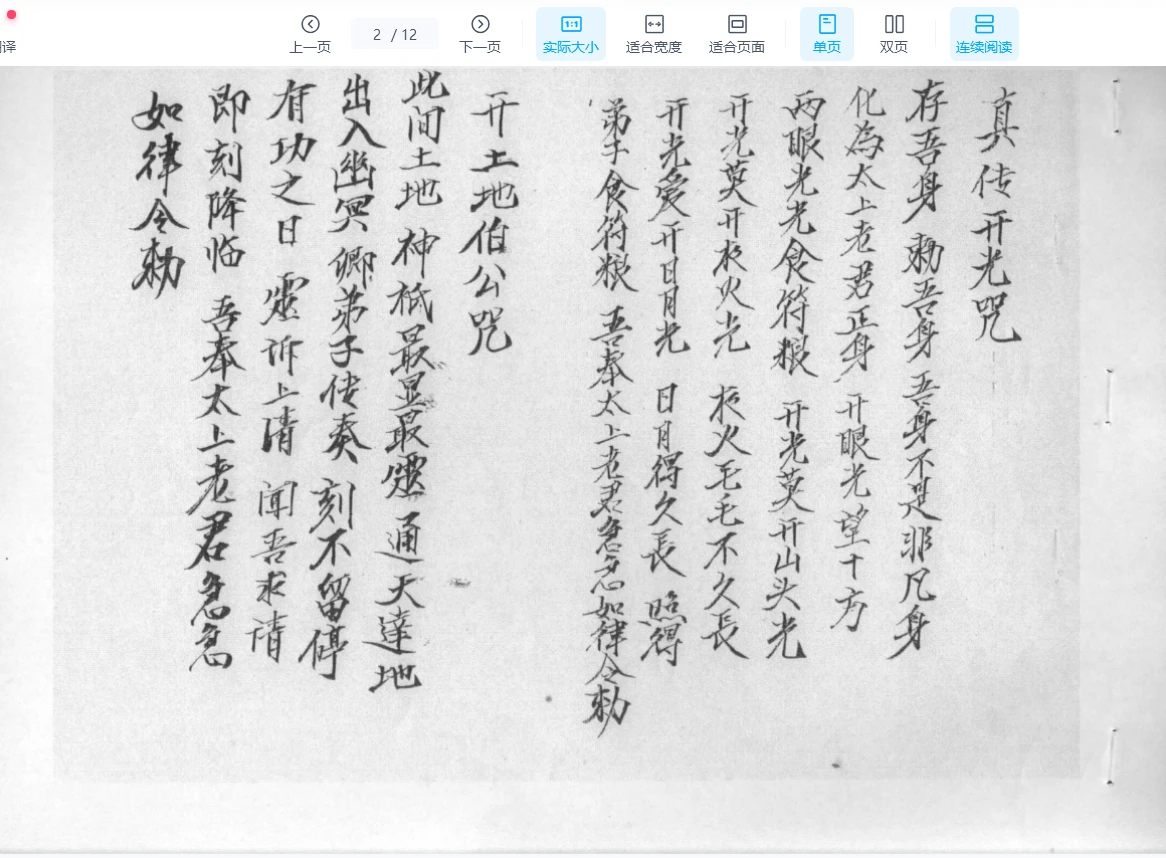 译
上一页
2 / 12
下一页
1:1
实际大小
适合宽度
适合页面
单页
双页
连续阅读
真传开光咒
存吾身 勅吾身 吾身不是非凡身
化為太上老君正身 开眼光望十方
两眼光光食符粮 开光莫开山头光
开光莫开火光 火毛毛不久長
开光爱开日月光 日月得久長 照得
弟子食符粮 吾奉太上老君急急如律令勅
开土地伯公咒
此间土地 神祇最显最灵 通天達地
出入幽冥 卿弟子传奏 刻不留停
有功之日 灵诉上清 闻吾求请
即刻降临 吾奉太上老君急急
如律令勅